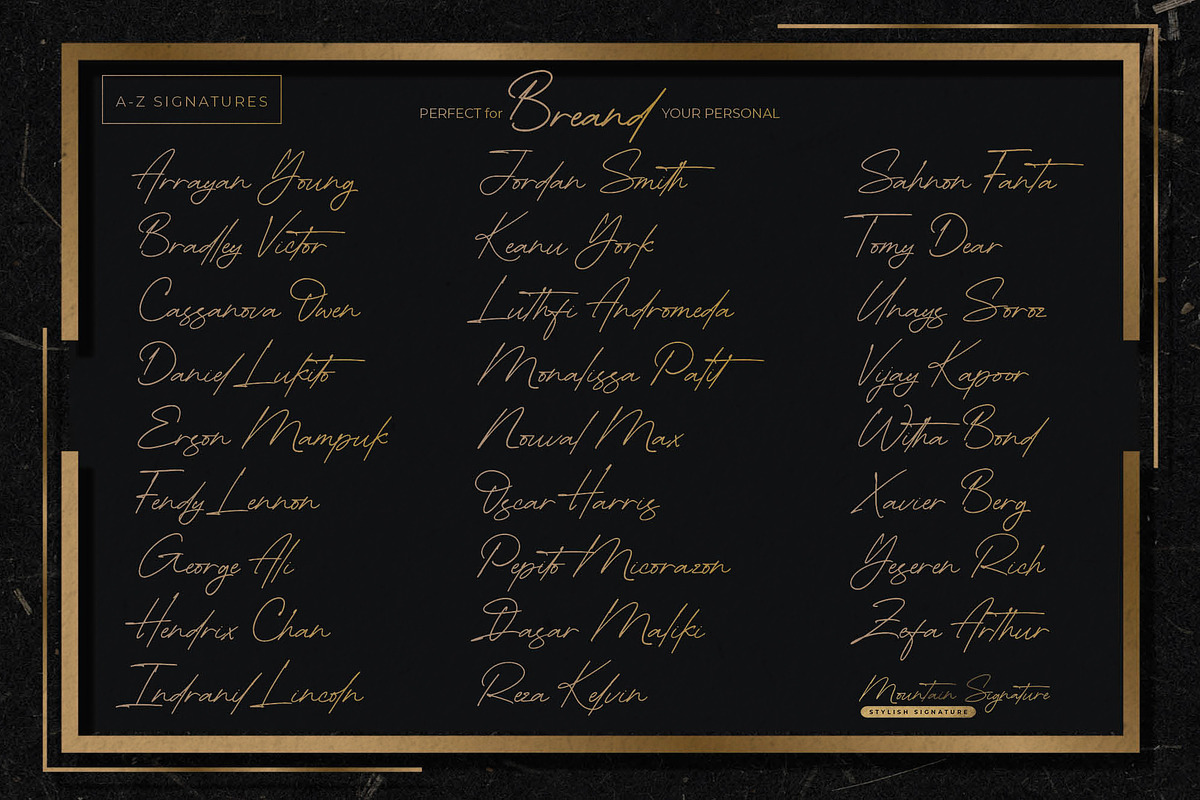 A-Z SIGNATURES
PERFECT for Breand YOUR PERSONAL
Arrayan Young
Bradley Victor
Cassanova Owen
Daniel Lukito
Erson Mampuk
Fendy Lennon
George Ali
Hendrix Chan
Indranil Lincoln
Jordan Smith
Keanu York
Luthfi Andromeda
Monalissa Patit
Nouval Max
Oscar Harris
Pepito Micorazon
Qasar Maliki
Reza Kelvin
Sahnon Fanta
Tomy Dear
Unays Soroz
Vijay Kapoor
Witha Bond
Xavier Berg
Yeseren Rich
Zefa Arthur
Mountain Signature
STYLISH SIGNATURE